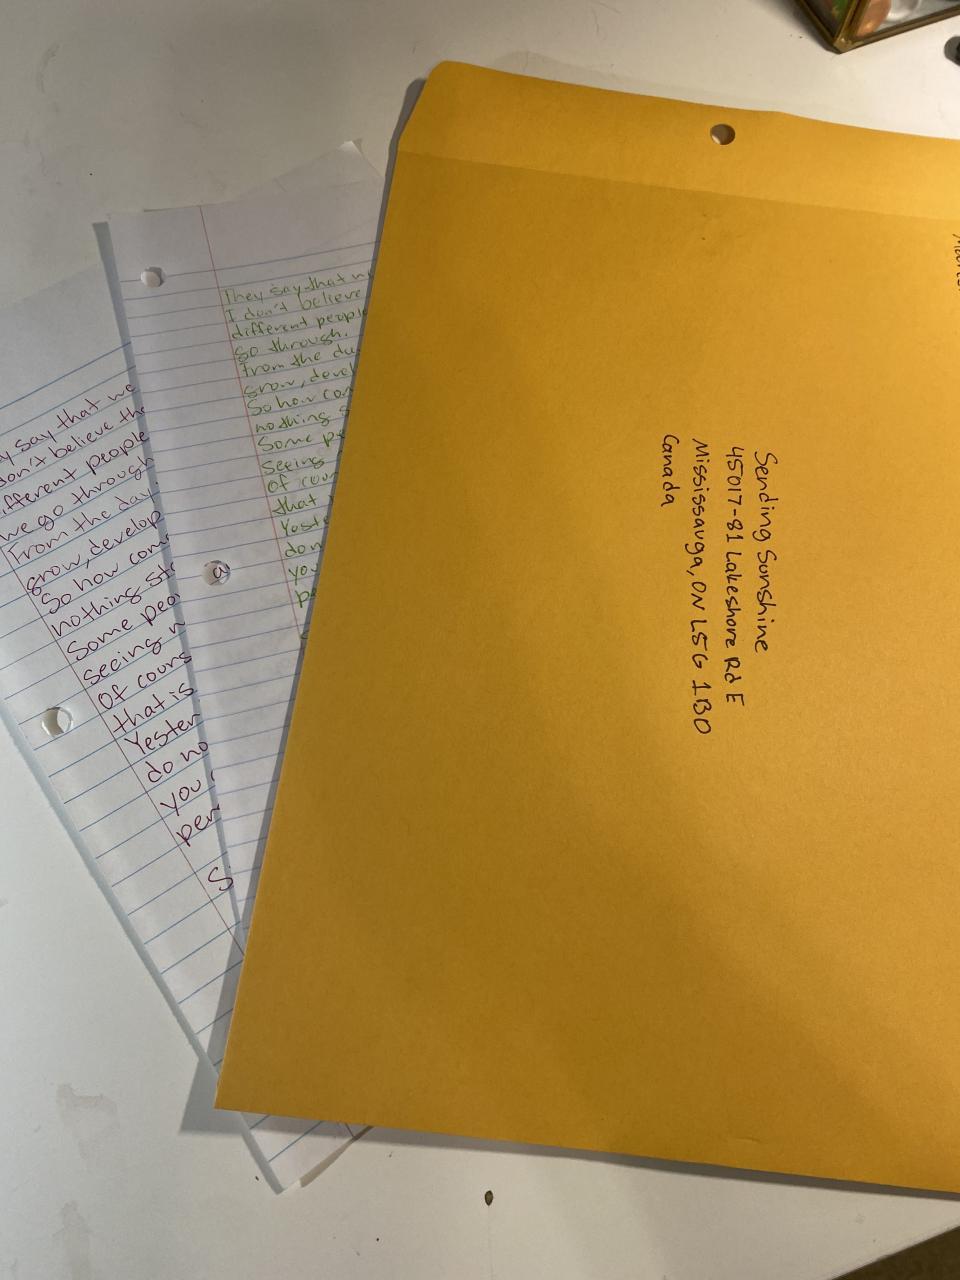 Sending Sunshine
45017-81 Lakeshore Rd E
Mississauga, ON L5G 1B0
Canada
They say that w
I don't believe
different people
go through.
From the da
grow, devel
So how con
nothing s
Some pe
seeing
of cour
that
Yeste
do n
you
pe
y say that we
don't believe the
ifferent people
we go through
From the day
grow, develop
So how com
nothing sta
Some peo
seeing n
Of cours
that is
Yester
do no
you
per
S
a